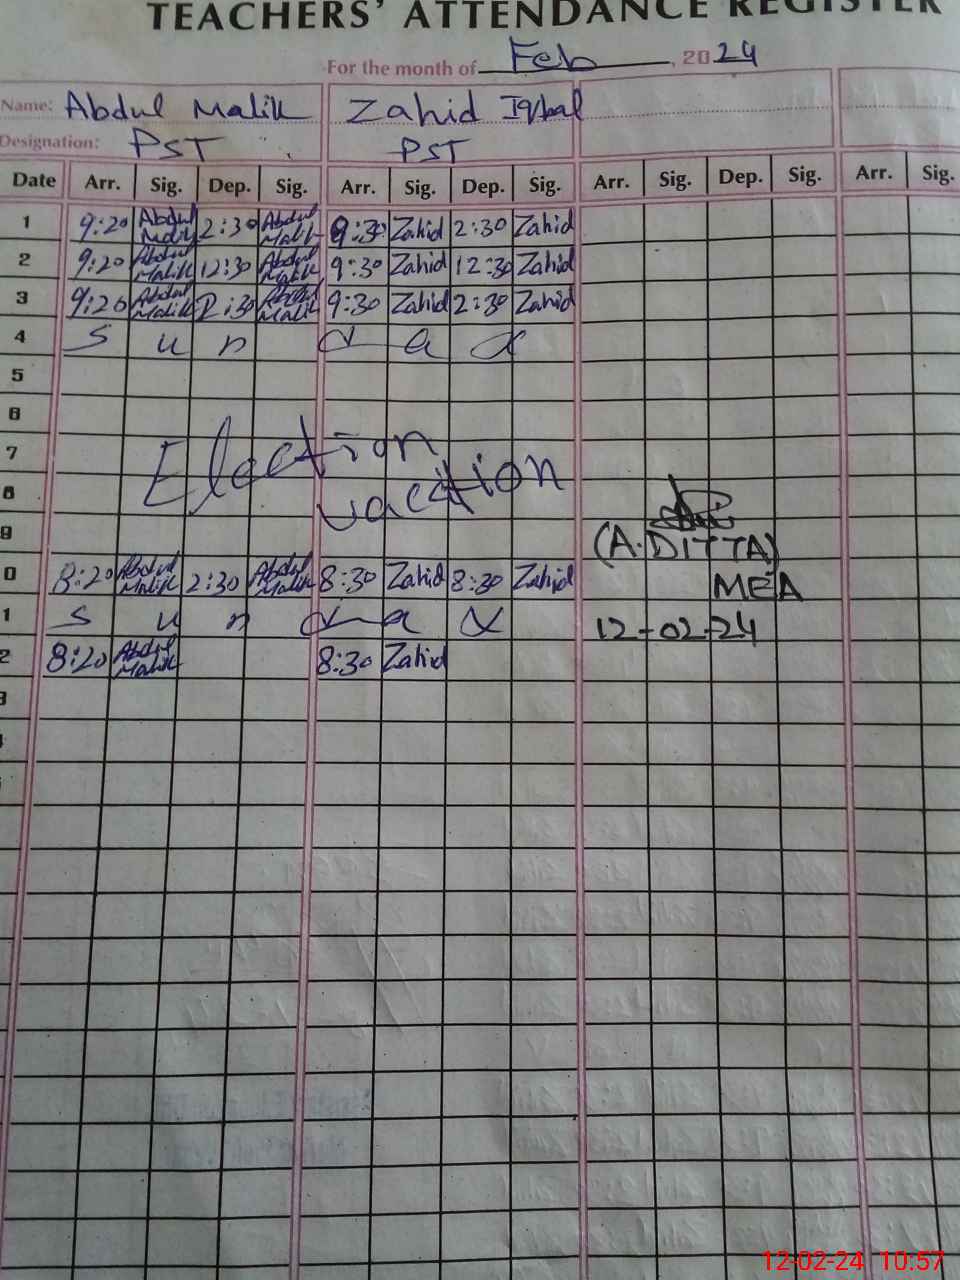 TEACHERS' ATTENDANCE REGISTER
For the month of Feb, 2024
Name: Abdul Malik Zahid Iqbal
Designation: PST PST
Date Arr. Sig. Dep. Sig. Arr. Sig. Dep. Sig. Arr. Sig. Dep. Sig. Arr. Sig.
1 9:20 Abdul Malik 2:30 Abdul Malik 9:30 Zahid 2:30 Zahid
2 9:20 Abdul Malik 12:30 Abdul Malik 9:30 Zahid 12:30 Zahid
3 9:20 Abdul Malik 2:30 Abdul Malik 9:30 Zahid 2:30 Zahid
4 S u n d a y
5
6
7 Election
8 vacation
9 (A. DITTA)
0 8:20 Abdul Malik 2:30 Abdul Malik 8:30 Zahid 8:30 Zahid MEA
1 S u n d a y 12-02-24
2 8:20 Abdul Malik 8:30 Zahid
3
12-02-24 10:57